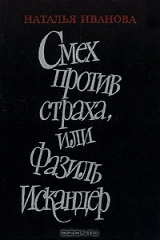 НАТАЛЬЯ ИВАНОВА
Смех
против
страха,
или
Фазиль
Искандер
OZON.RU